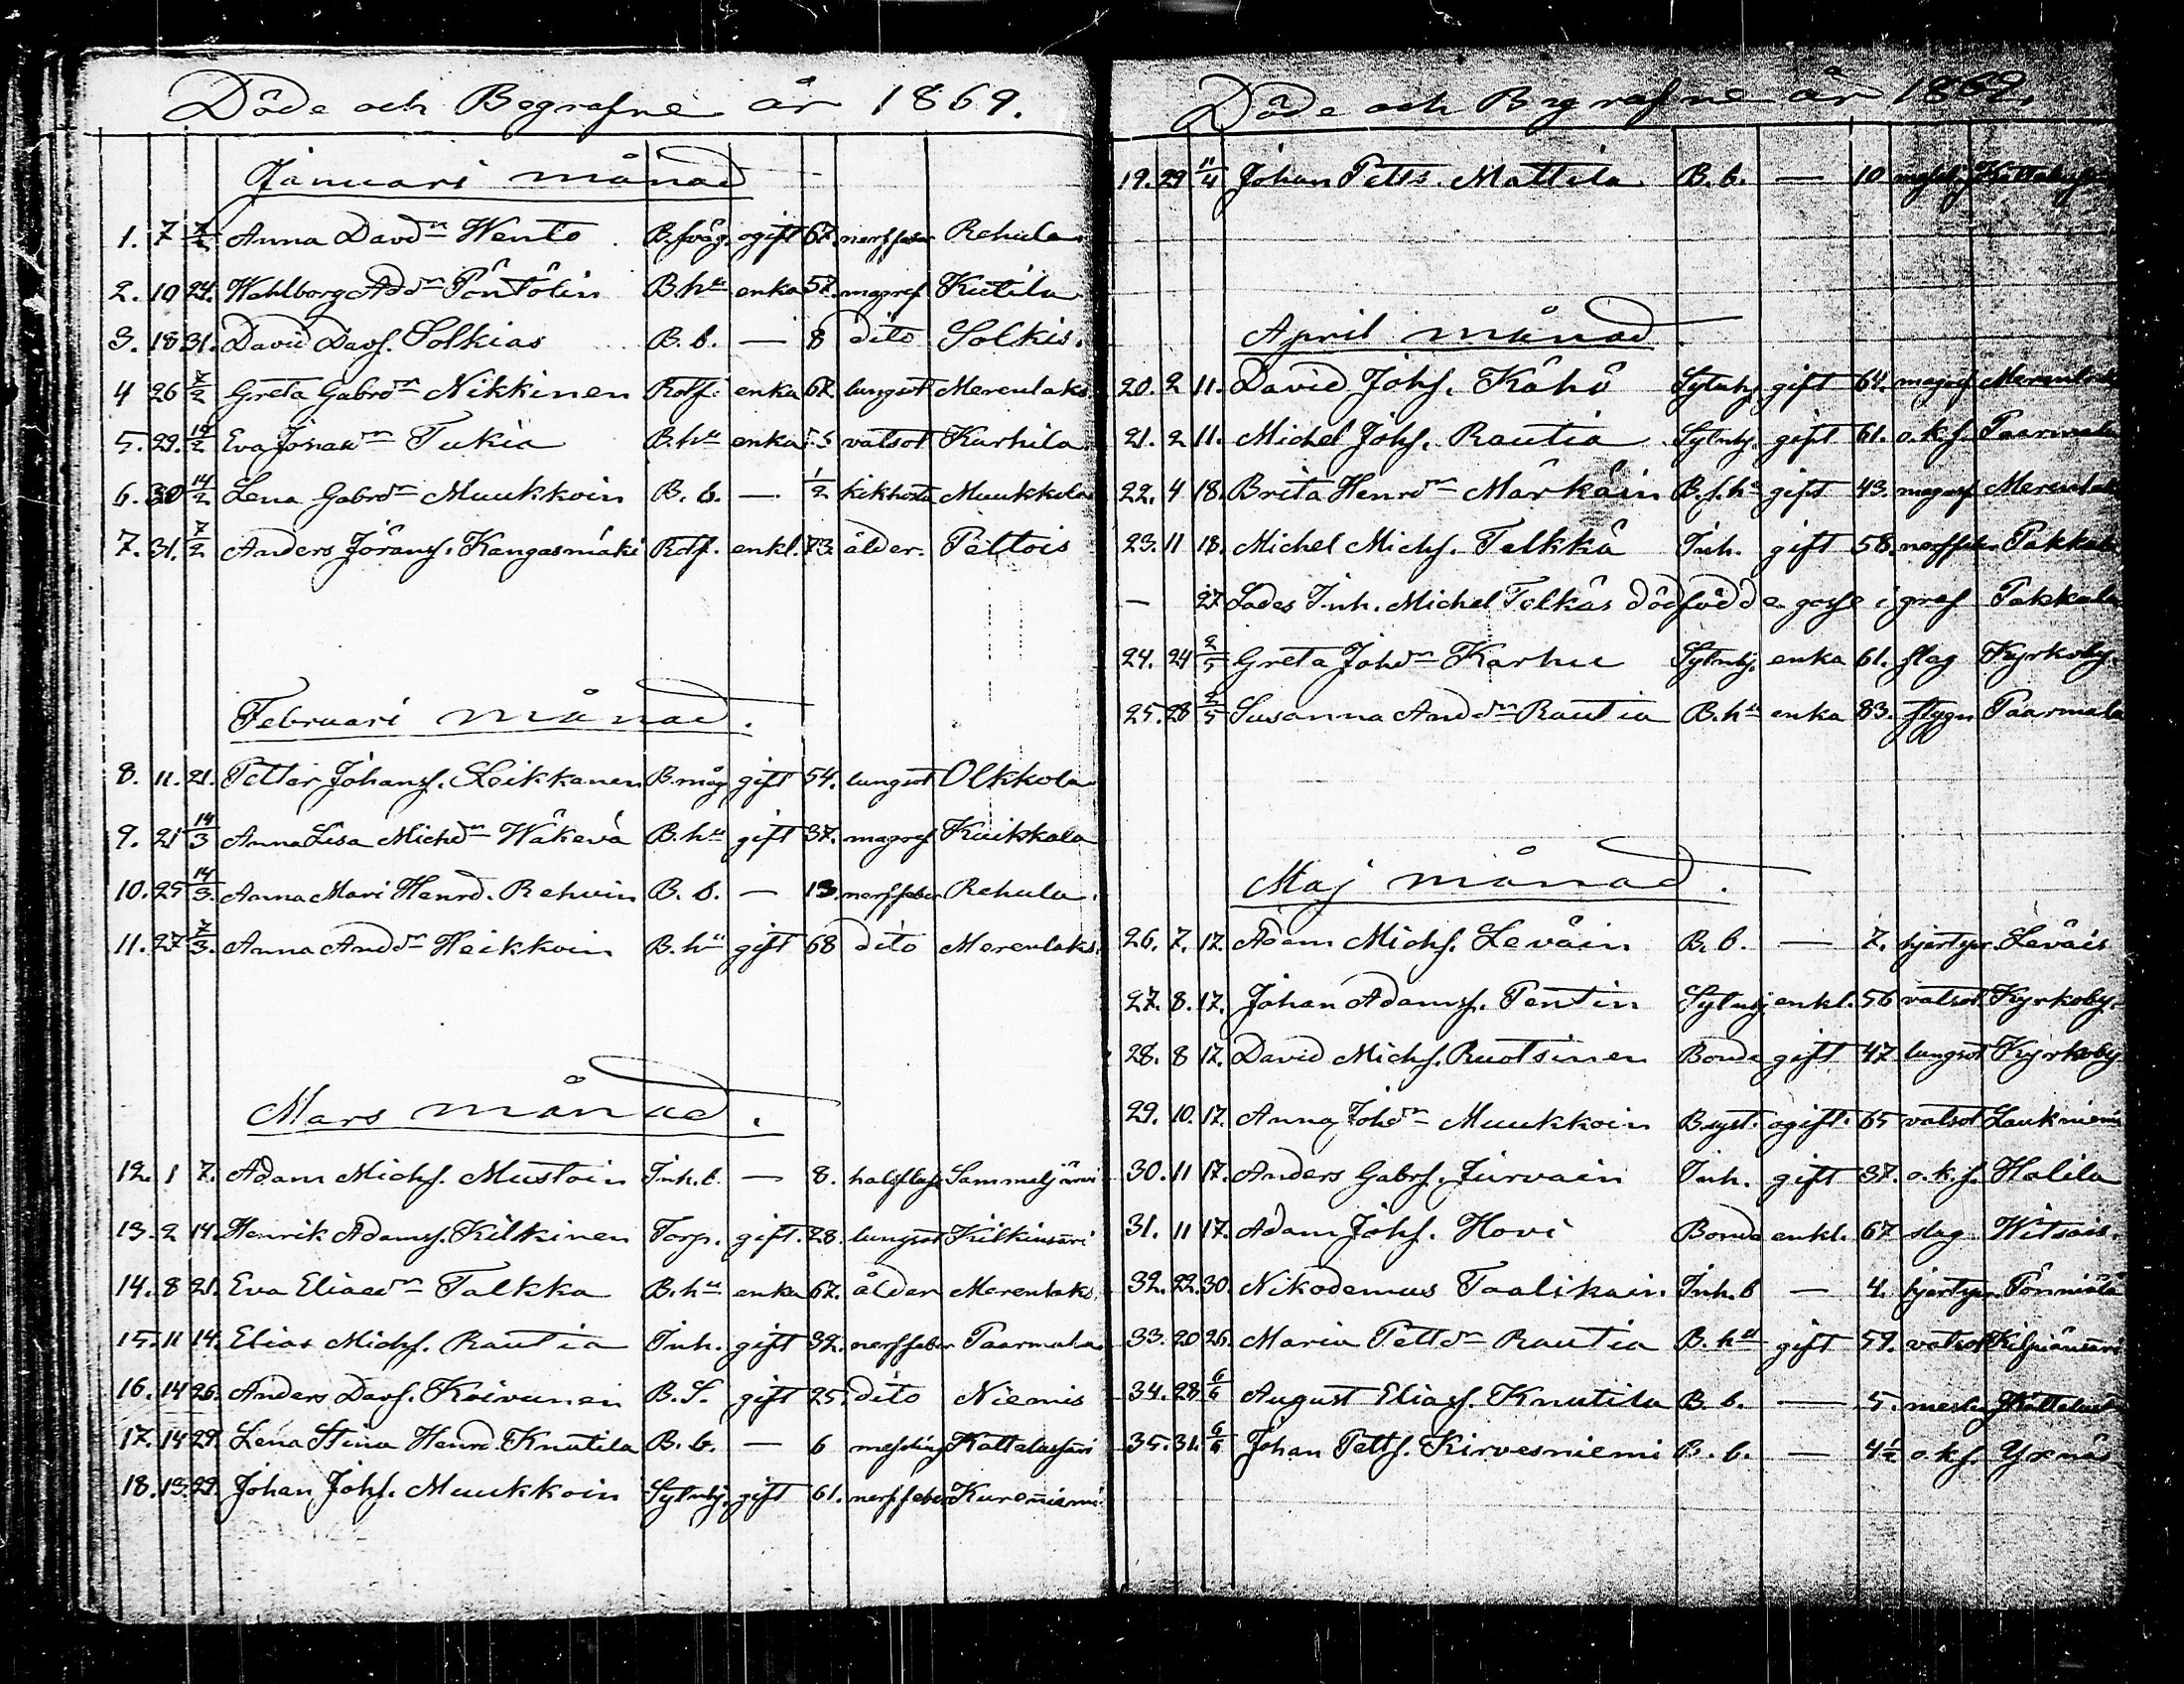 Döde och Begrafne år 1869.
Januari månad
1. 7 7/2 Anna Davdr Wento B. sväg. ogift 67. nerffeber Rehula
2. 10 24. Wahlborg Addr Pöntölin B. hu enka 57. magref Kutila
3. 18 31. David Davs. Solkias B. b. — 8 dito Solkis.
4 26 7/2 Greta Gabrdr Nikkinen Rotf. enka 67. lungsot Merenlaks
5. 29. 14/2 Eva Jönasdr Tukia B. hu enka vatsot Kurhila
6. 30 14/2 Lena Gabrdr Muukkoin B. b. — 1/2 kikhosta Muukkola
7. 31. 7/2 Anders Jörans. Kangasmäki Rotf. enkl. 73. ålder. Peltois
Februari månad.
8. 11. 21. Petter Johans. Leikkanen B. måg gift 54. lungsot Olkkola
9. 21 14/3 Anna Lisa Michdr Wäkevä B. hu gift 37. magref Kuikkala
10. 25 14/3. Anna Mari Henrd. Rehvin B. b. — 13. nerffeber Rehula.
11. 27 7/3. Anna Anddr Heikkoin B. hu gift 68 dito Merenlaks.
Mars månad.
12. 1 7. Adam Michs. Mustoin Inh. b. — 8. halsfluss Sammaljärvi
13. 2 14. Henrik Adams. Kilkinen Torp. gift. 28. lungsot Kilkinsari
14. 8 21. Eva Eliasdr Talkka B. hu enka 67. ålder Merenlaks.
15. 11 14. Elias Michs. Rautia Inh. gift 32. nerffeber Paarmala.
16. 14 26. Anders Davs. Koivunen B. S. gift 25. dito Niemis
17. 14 29. Lena Stina Henrd. Knutila B. b. — 6 messling Kattelussari
18. 19. 29. Johan Johs. Muukkoin Sytnhj. gift 61. nerffeber Kureniemi
Döde och Begrafne år 1869.
19. 29 11/4 Johan Petts. Mattila B. b. — 10
April månad.
20. 2 11. David Johs. Kähö Sytnhj. gift 64. magref Merenlaks
21. 2 11. Michel Johs. Rautia Sytnhj. gift 61. o.k.s. Paarmala
22. 4 18. Brita Henrdr Märkäin B. s. hu gift 43. magref Merenlaks
23. 11 18. Michel Michs. Telkkä Inh. gift 58. nerffeber Pakkala
— 27 Lades Inh. Michel Telkäs dödfödde gosse i graf Pakkala
24. 24 2/5 Greta Johdr Karhu Sytnhj. enka 61. slag Kyrkoby.
25. 28 2/5 Susanna Anddr Rautia B. hu enka 83. stygn Paarmala
Maj månad.
26. 7. 17. Adam Michs. Leväin B. b. — 7. hjertspr. Leväis
27. 8. 17. Johan Adams. Pentin Sytnhj enkl. 56 vatsot. Kyrkoby.
28. 8 17. David Michs. Ruotsinen Bonde gift 47 lungsot Kyrkoby
29. 10. 17. Anna Johdr Muukkoin B. syst. ogift. 65 vatsot Laukniemi
30. 11 17. Anders Gabrs. Jurvain Inh. gift 37. o.k.s. Halila
31. 11 17. Adam Johs. Hovi Bonde enkl. 67 slag Witsais.
32. 22. 30. Nikodemus Taalikain. Inh. b — 4. hjertspr. Pönniälä
33. 20 26. Maria Pettdr Rautia B. hu gift 59. vatsot Kiljuänsari
34. 28. 6/6 August Elias. Knutila B. b. — 5. messling Kattelus
35. 31. 6/6 Johan Petts. Kirvesniemi B. b. — 4 1/2 o.k.s. Yxnäs